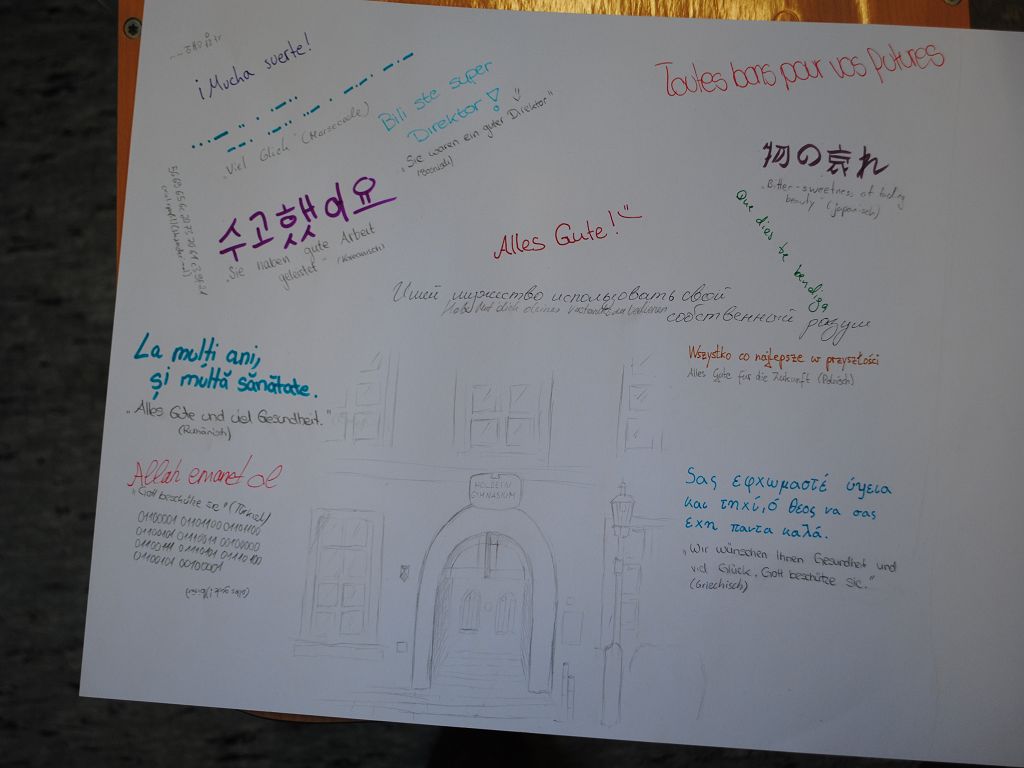 ¡Mucha suerte!
"Viel Glück" (Morsecode)
Bili ste super
Direktor!
"Sie waren ein guter Direktor"
(Bosnisch)
Toutes bons pour vos futures
物の哀れ
"Bitter-sweetness of fading
beauty" (japanisch)
수고했어요
"Sie haben gute Arbeit
geleistet" (Koreanisch)
Alles Gute!
Que dios te bendiga
Имей мужество использовать свой
собственный разум
Habe Mut dich deines Verstandes zu bedienen
La mulți ani,
și multă sănătate.
"Alles Gute und viel Gesundheit."
(Rumänisch)
Wszystko co najlepsze w przyszłości
Alles Gute für die Zukunft (Polnisch)
Allah emanet ol
"Gott beschütze sie" (Türkisch)
01100001 01101100 01101100
01100101 01110011 00100000
01100111 01110101 01110100
01100101 00100001
(alles gute! / Binär)
HÖLDERLIN
GYMNASIUM
Sας εφχωμαστέ ύγεια
και τηχύ, ό θεος να σας
έχη παντα καλά.
"Wir wünschen Ihnen Gesundheit und
viel Glück, Gott beschütze sie."
(Griechisch)